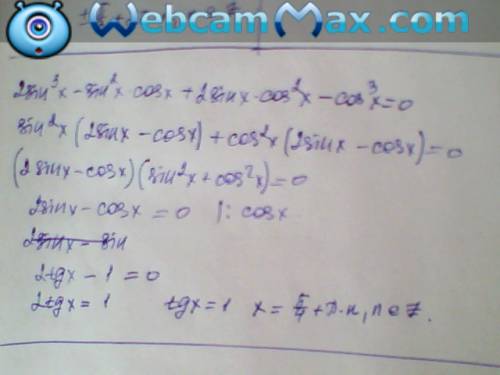 WebcamMax.com
2sin³x - sin²x·cosx + 2sinx·cos²x - cos³x=0
sin²x(2sinx - cosx) + cos²x(2sinx - cosx)=0
(2sinx - cosx)(sin²x + cos²x)=0
2sinx - cosx = 0 |: cosx
2sinx - sin
2tgx - 1 = 0
2tgx = 1 tgx = 1 x = π/4 + π·n, n∈Z.